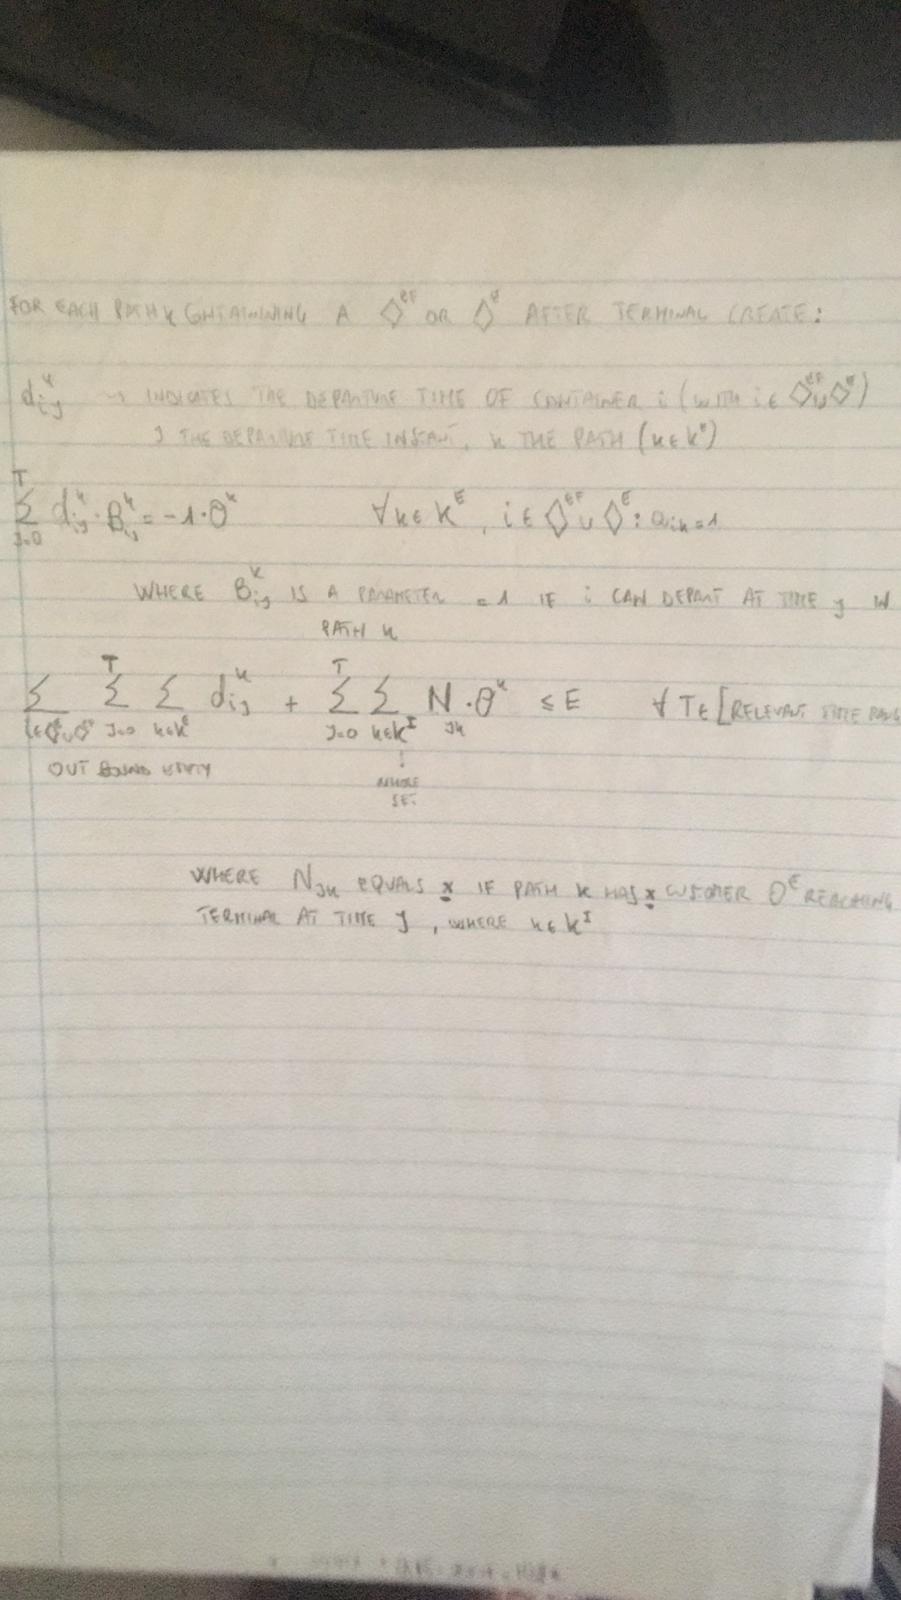 FOR EACH PATH k CONTAINING A ◇^EF OR ◇^E AFTER TERMINAL CREATE:
d_ij^k → INDICATES THE DEPARTURE TIME OF CONTAINER i (WITH i ∈ ◇^EF ∪ ◇^E)
J THE DEPARTURE TIME INSTANT, k THE PATH (k ∈ K^E)
∑_{J=0}^{T} d_ij^k · B_ij^k = -1 · θ^k ∀ k ∈ K^E, i ∈ ◇^EF ∪ ◇^E : a_ik = 1
WHERE B_ij^k IS A PARAMETER = 1 IF i CAN DEPART AT TIME j IN
PATH k
∑_{i ∈ ◇^E ∪ ◇^EF} ∑_{J=0}^{T} ∑_{k ∈ K^E} d_ij^k + ∑_{J=0}^{T} ∑_{k ∈ K^I} N_Jk · θ^k ≤ E ∀ T ∈ [RELEVANT TIME
OUT BOUND EMPTY
WHOLE
SET
WHERE N_Jk EQUALS x IF PATH k HAS x CUSTOMER O^E REACHING
TERMINAL AT TIME J, WHERE k ∈ K^I